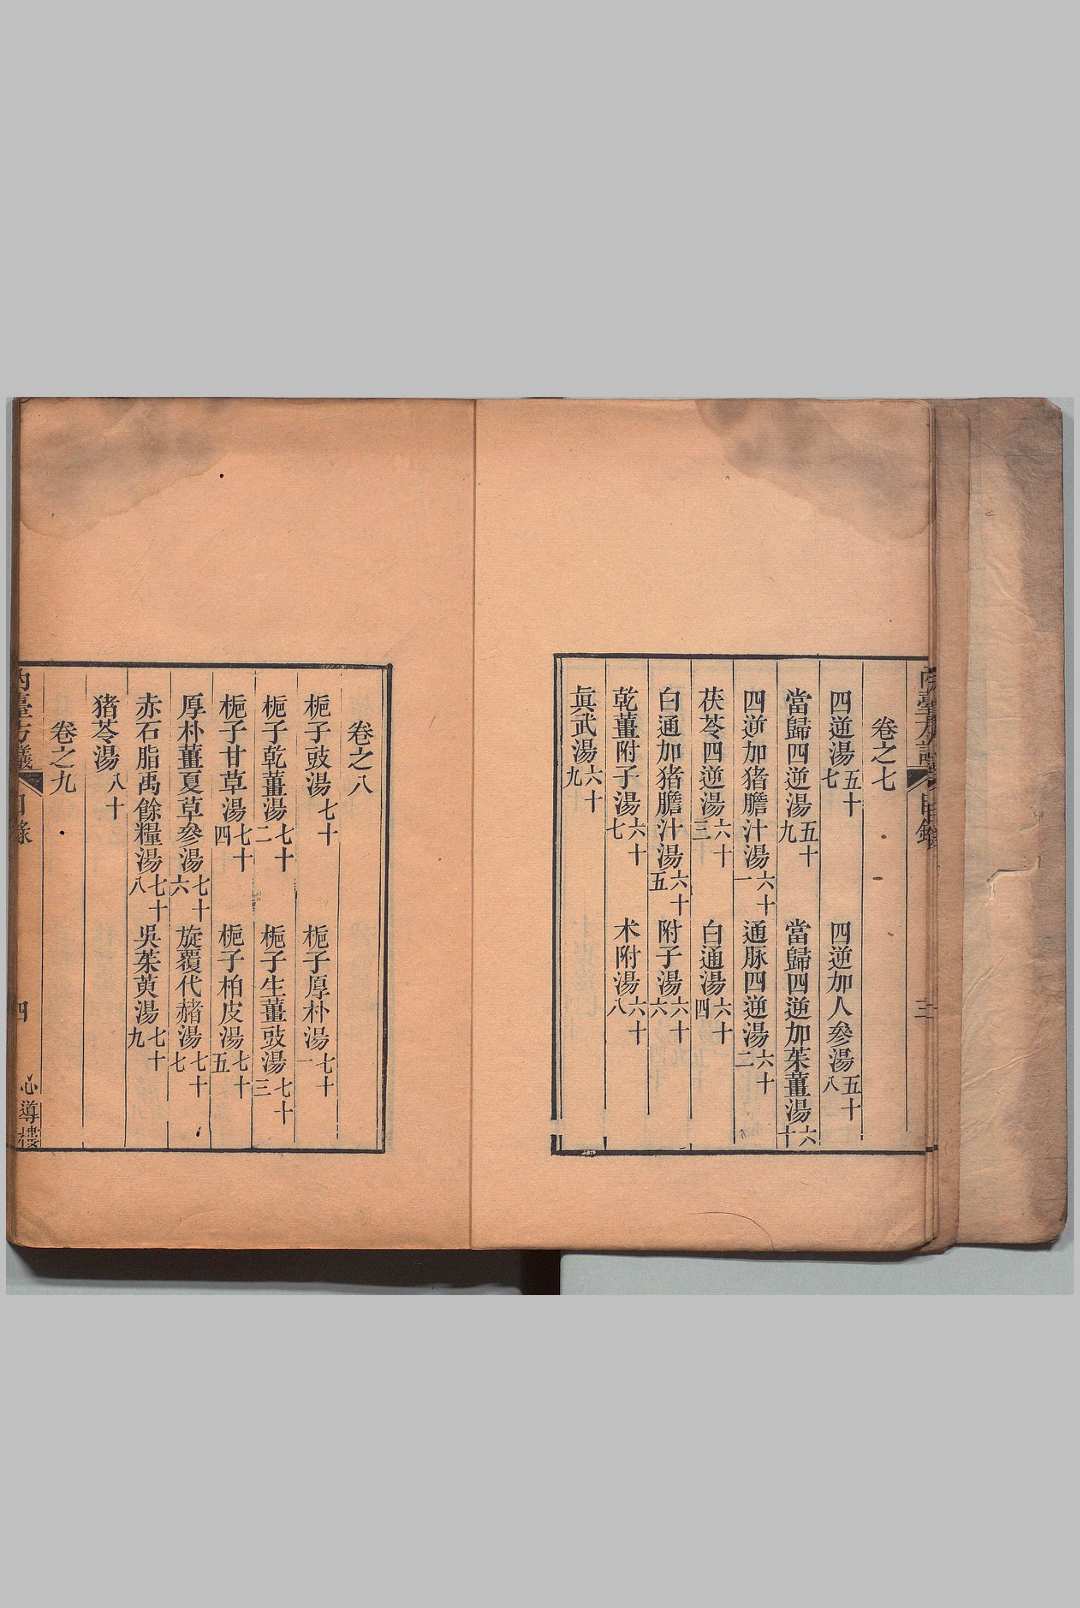 內臺方議 目錄 三
卷之七
四逆湯五十七 四逆加人參湯五十八
當歸四逆湯五十九 當歸四逆加茱薑湯六十
四逆加猪膽汁湯六十一 通脈四逆湯六十二
茯苓四逆湯六十三 白通湯六十四
白通加猪膽汁湯六十五 附子湯六十六
乾薑附子湯六十七 术附湯六十八
眞武湯六十九
卷之八
梔子豉湯七十 梔子厚朴湯七十一
梔子乾薑湯七十二 梔子生薑豉湯七十三
梔子甘草湯七十四 梔子柏皮湯七十五
厚朴薑夏草參湯七十六 旋覆代赭湯七十七
赤石脂禹餘糧湯七十八 吳茱萸湯七十九
猪苓湯八十
卷之九
內臺方議 目錄 四 心導樓